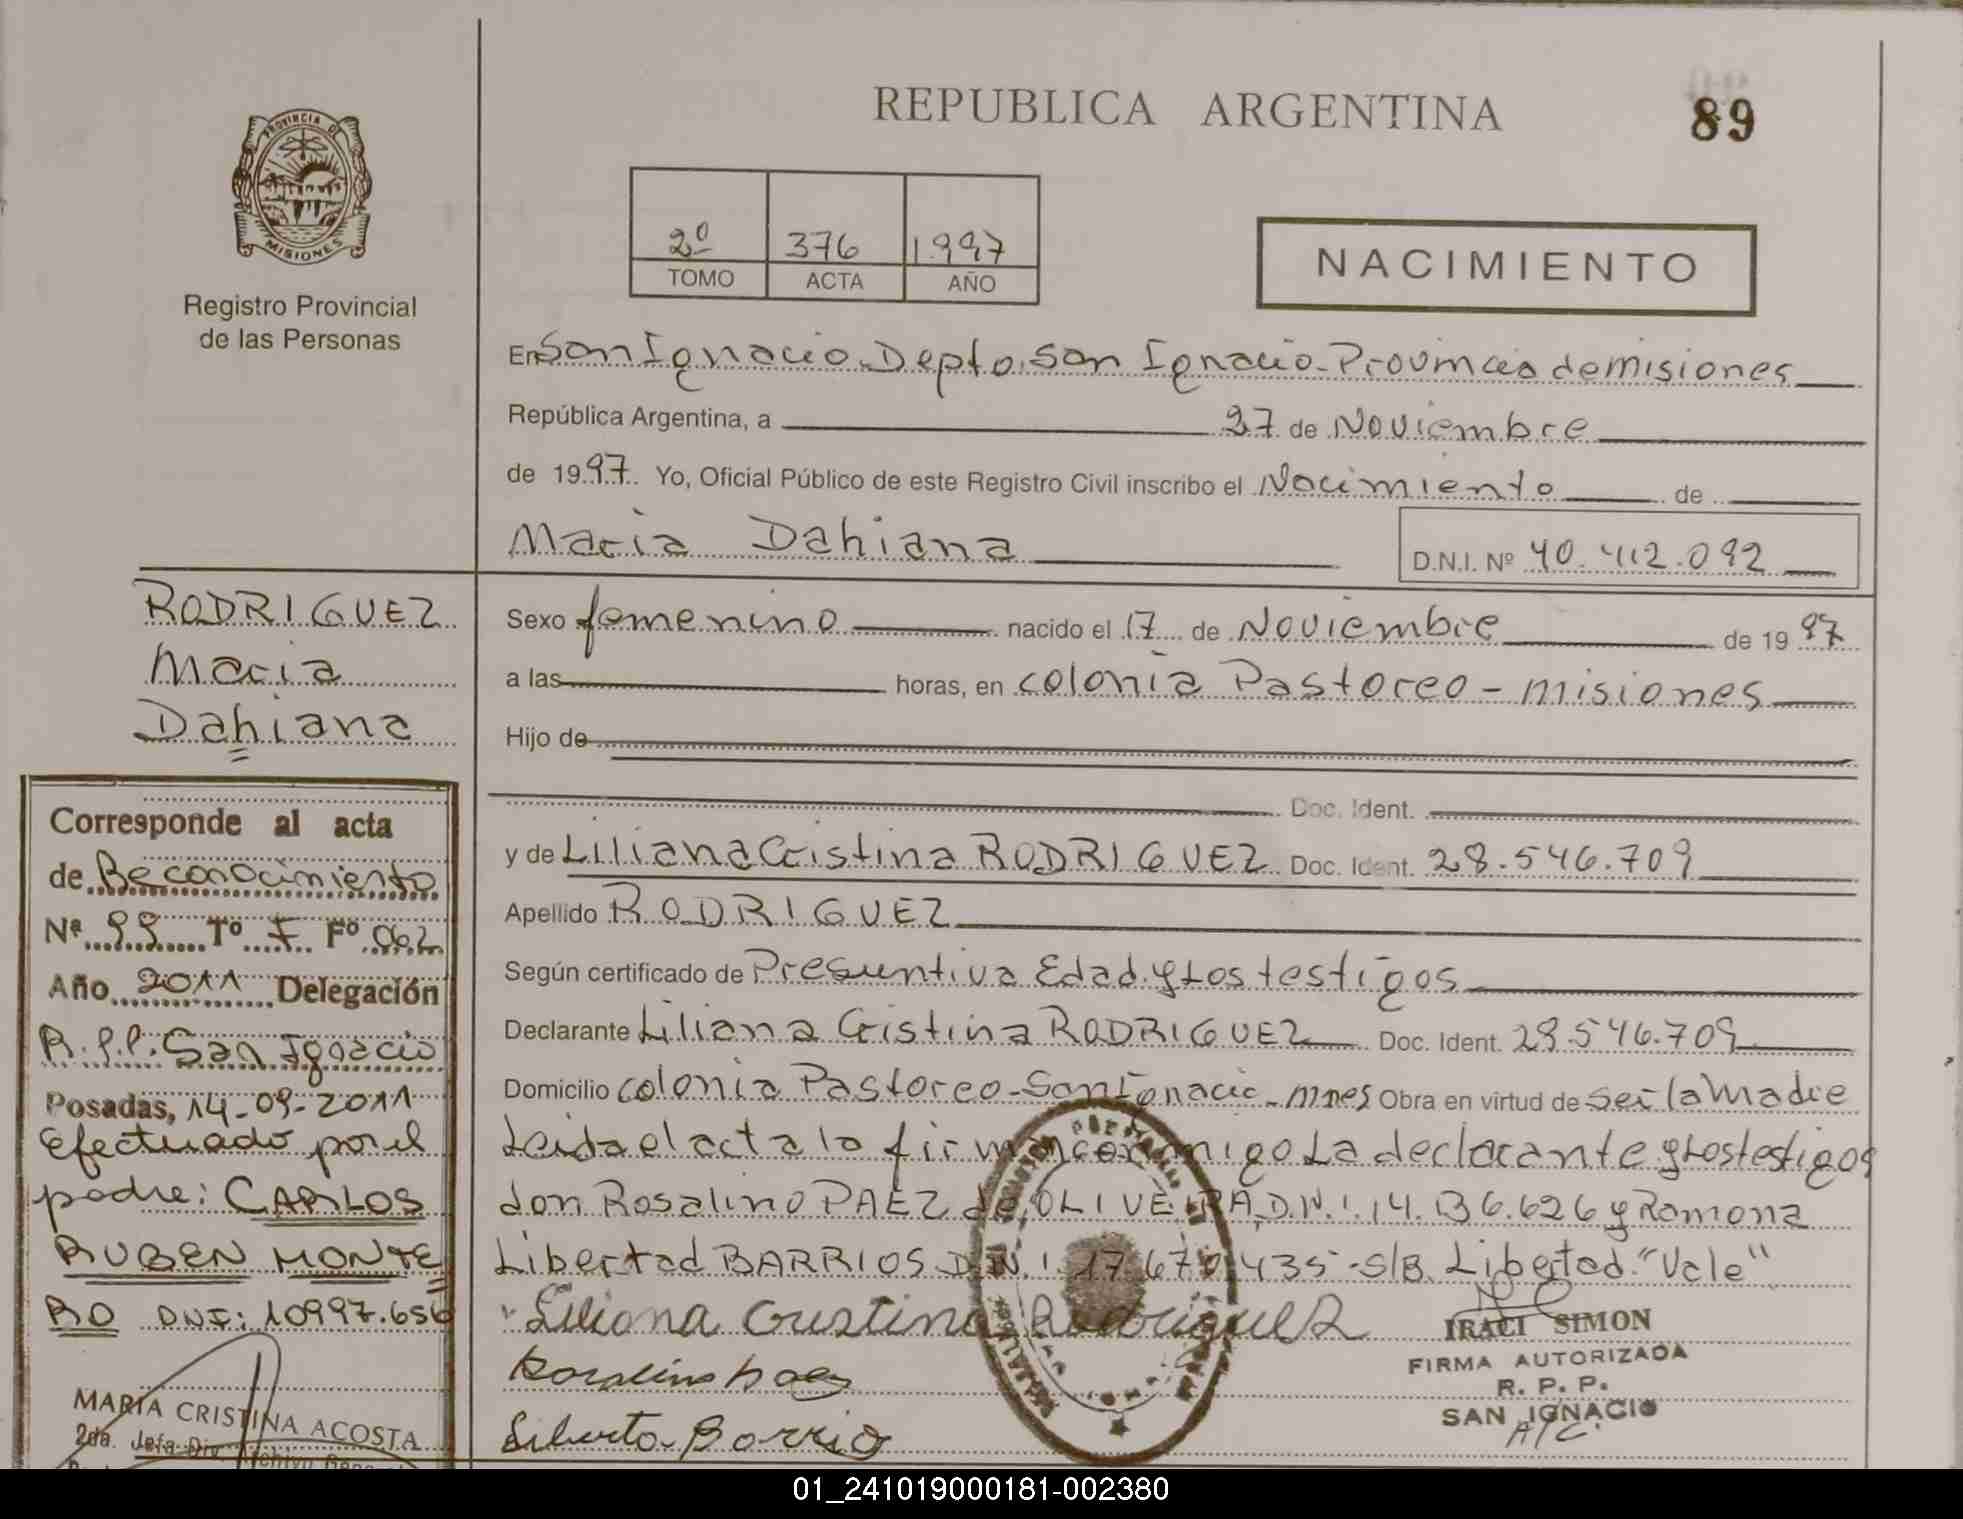 REPUBLICA ARGENTINA
89
PROVINCIA DE
MISIONES
Registro Provincial
de las Personas
2º 376 1.997
TOMO ACTA AÑO
NACIMIENTO
En San Ignacio. Depto. San Ignacio - Provincia de Misiones
República Argentina, a 27 de Noviembre
de 1997. Yo, Oficial Público de este Registro Civil inscribo el Nacimiento de
Maria Dahiana
D.N.I. Nº 40.412.092
RODRIGUEZ
Maria
Dahiana
Sexo femenino nacido el 17 de Noviembre de 1997
a las horas, en colonia Pastoreo - misiones
Hijo de
Doc. Ident.
y de Liliana Cristina RODRIGUEZ Doc. Ident. 28.546.709
Apellido RODRIGUEZ
Según certificado de Presuntiva Edad y Los testigos
Declarante Liliana Cristina RODRIGUEZ Doc. Ident. 28.546.709
Domicilio colonia Pastoreo - San Ignacio - Mnes Obra en virtud de ser la Madre
Leida el acta la firman conmigo La declarante y Los testigos
don Rosalino PAEZ de OLIVEIRA, D.N.I. 14.136.626 y Romona
Libertad BARRIOS D.N.I. 17.670.435 - S/B. Libertad. "Vale"
Liliana Cristina Rodriguez
Rosalino Paez
Barrio
IRACI SIMON
FIRMA AUTORIZADA
R. P. P.
SAN IGNACIO
A/C.
Corresponde al acta
de Reconocimiento
Nº 99 Tº I Fº 062
Año 2011 Delegación
R.P.P. San Ignacio
Posadas, 14-09-2011
Efectuado por el
padre: CARLOS
RUBEN MONTE
RO DNI: 10997.656
MARIA CRISTINA ACOSTA
2da. Jefa Div. Archivo
01_241019000181-002380